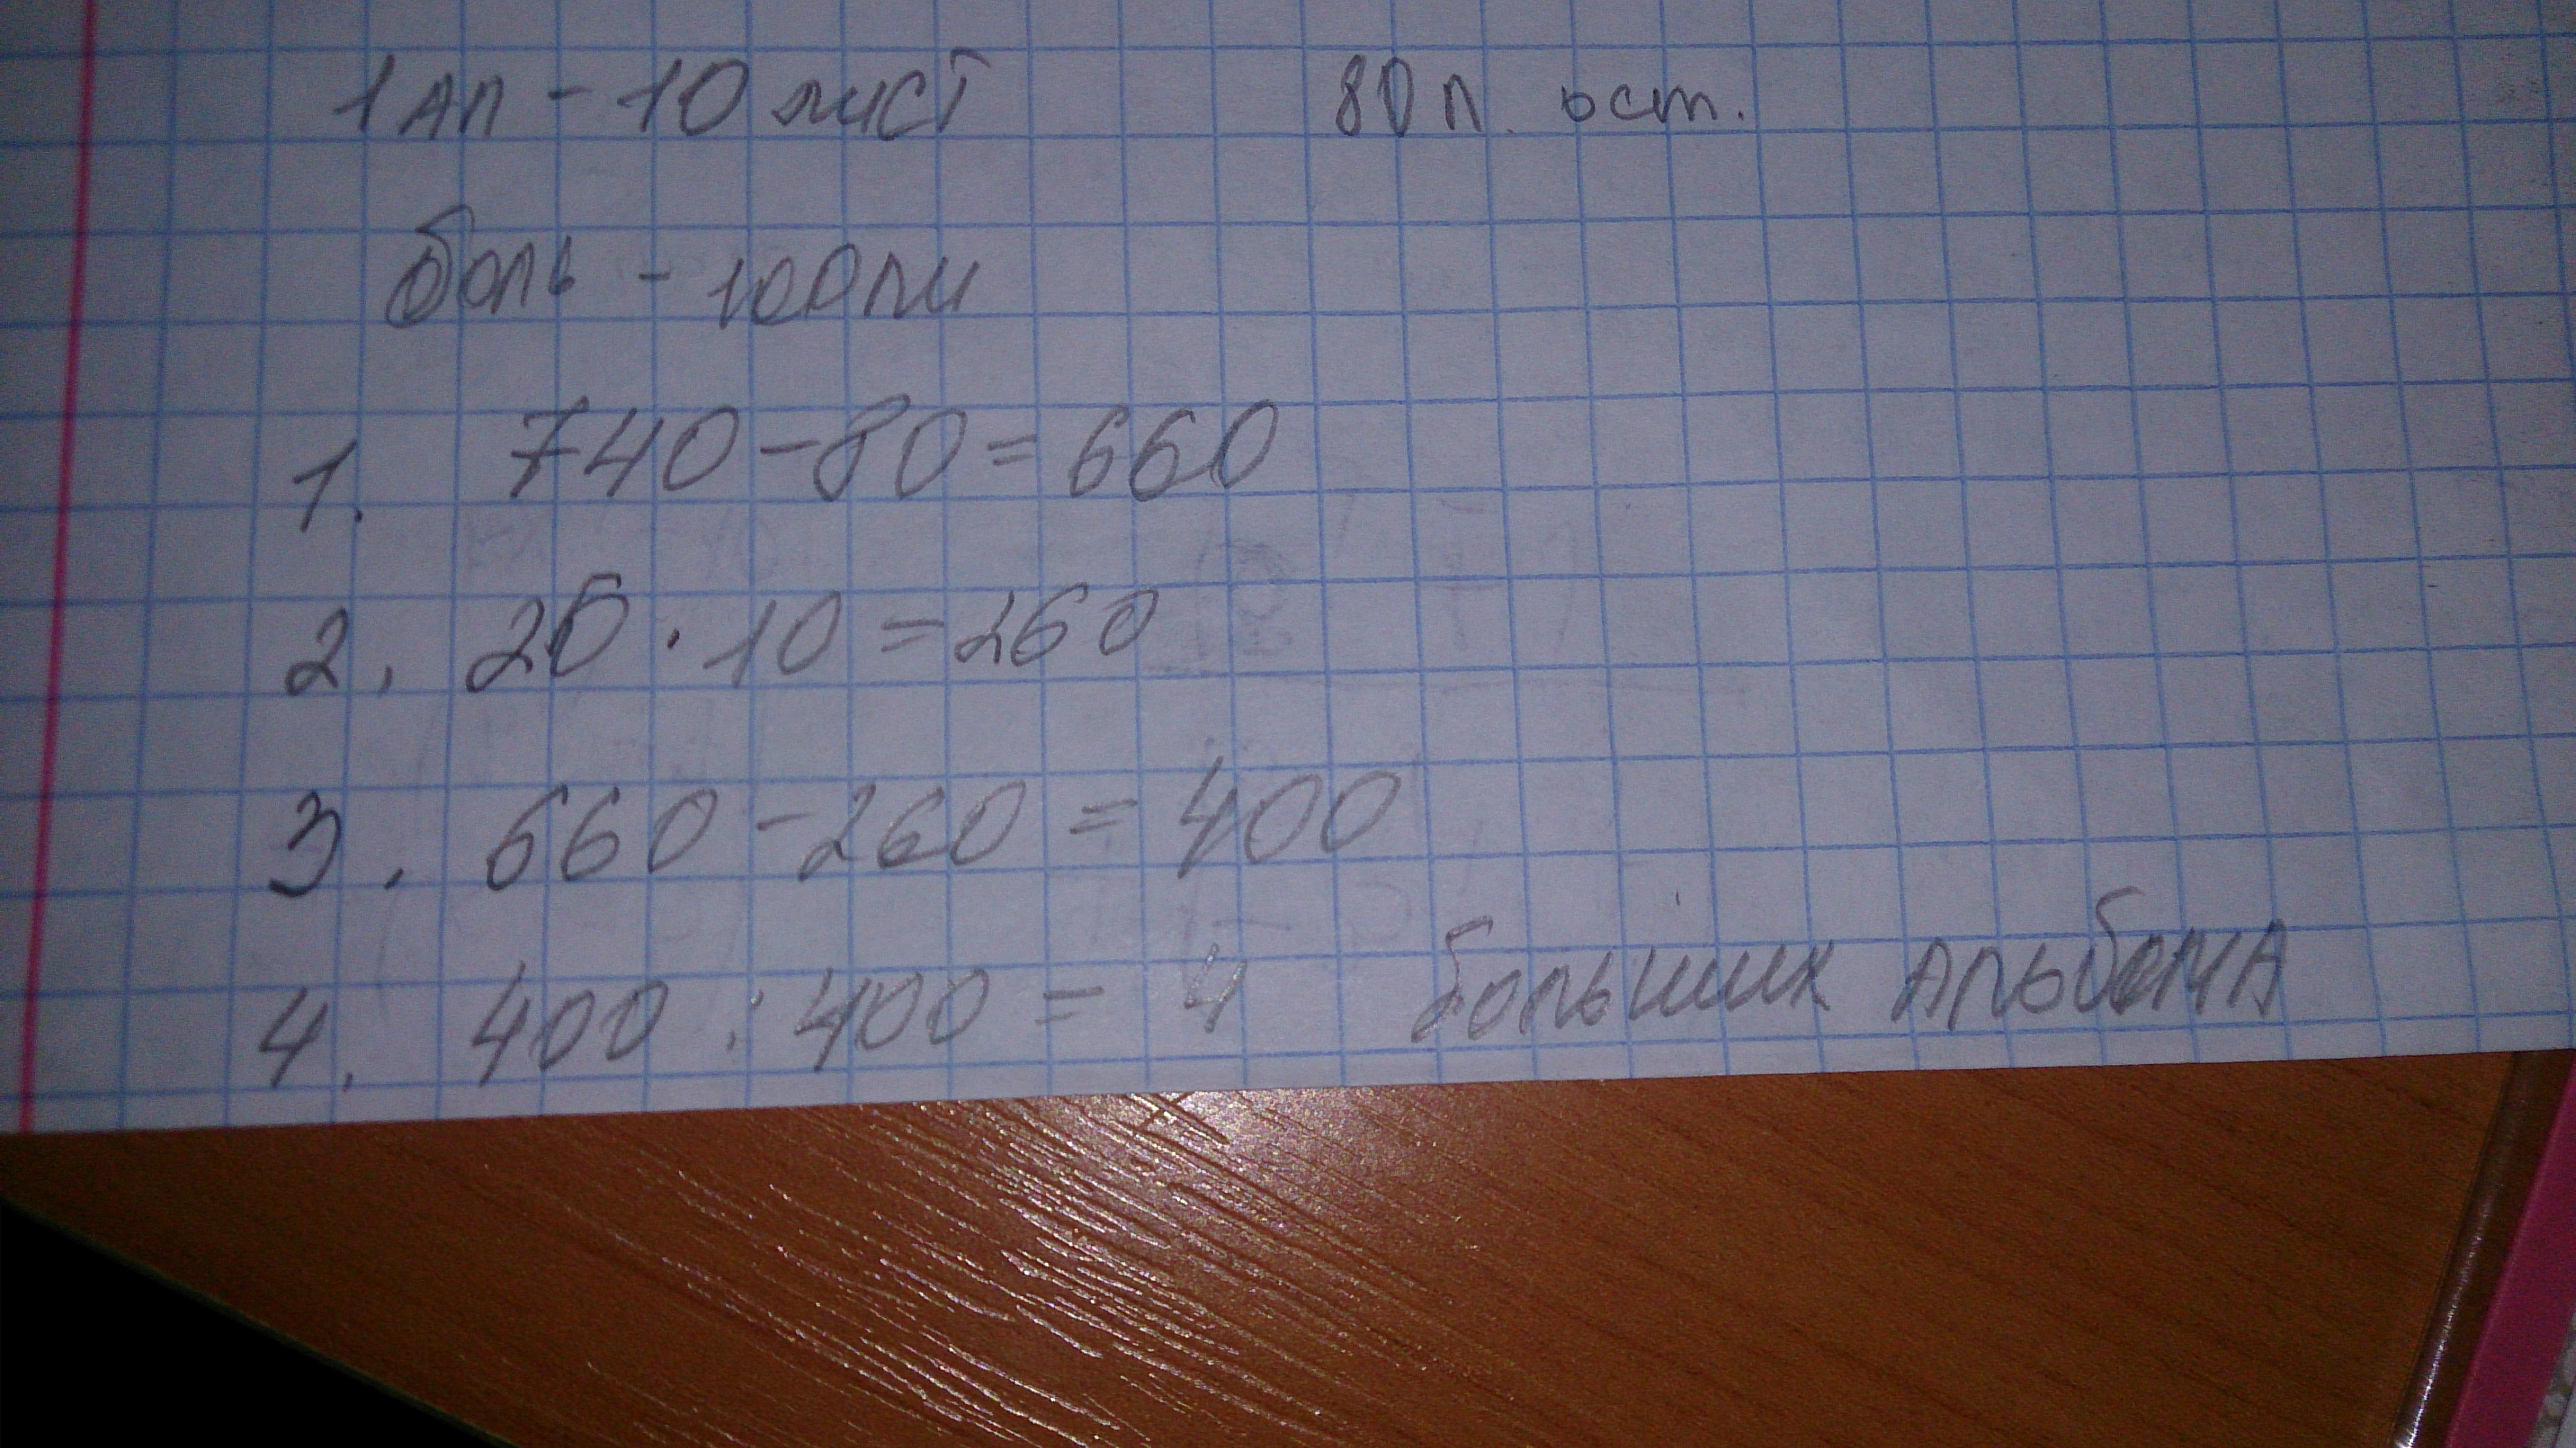 1 АЛ - 10 лист 80 л. ост.
боль - 100 ли
1. 740 - 80 = 660
2. 26 · 10 = 260
3. 660 - 260 = 400
4. 400 : 400 = 4 больших АльбомА